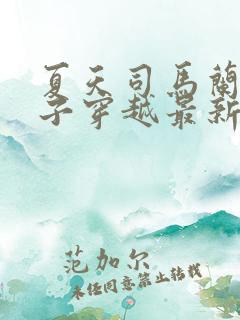 夏天司馬蘭
子穿越最新
范加尔
未经同意禁止转载